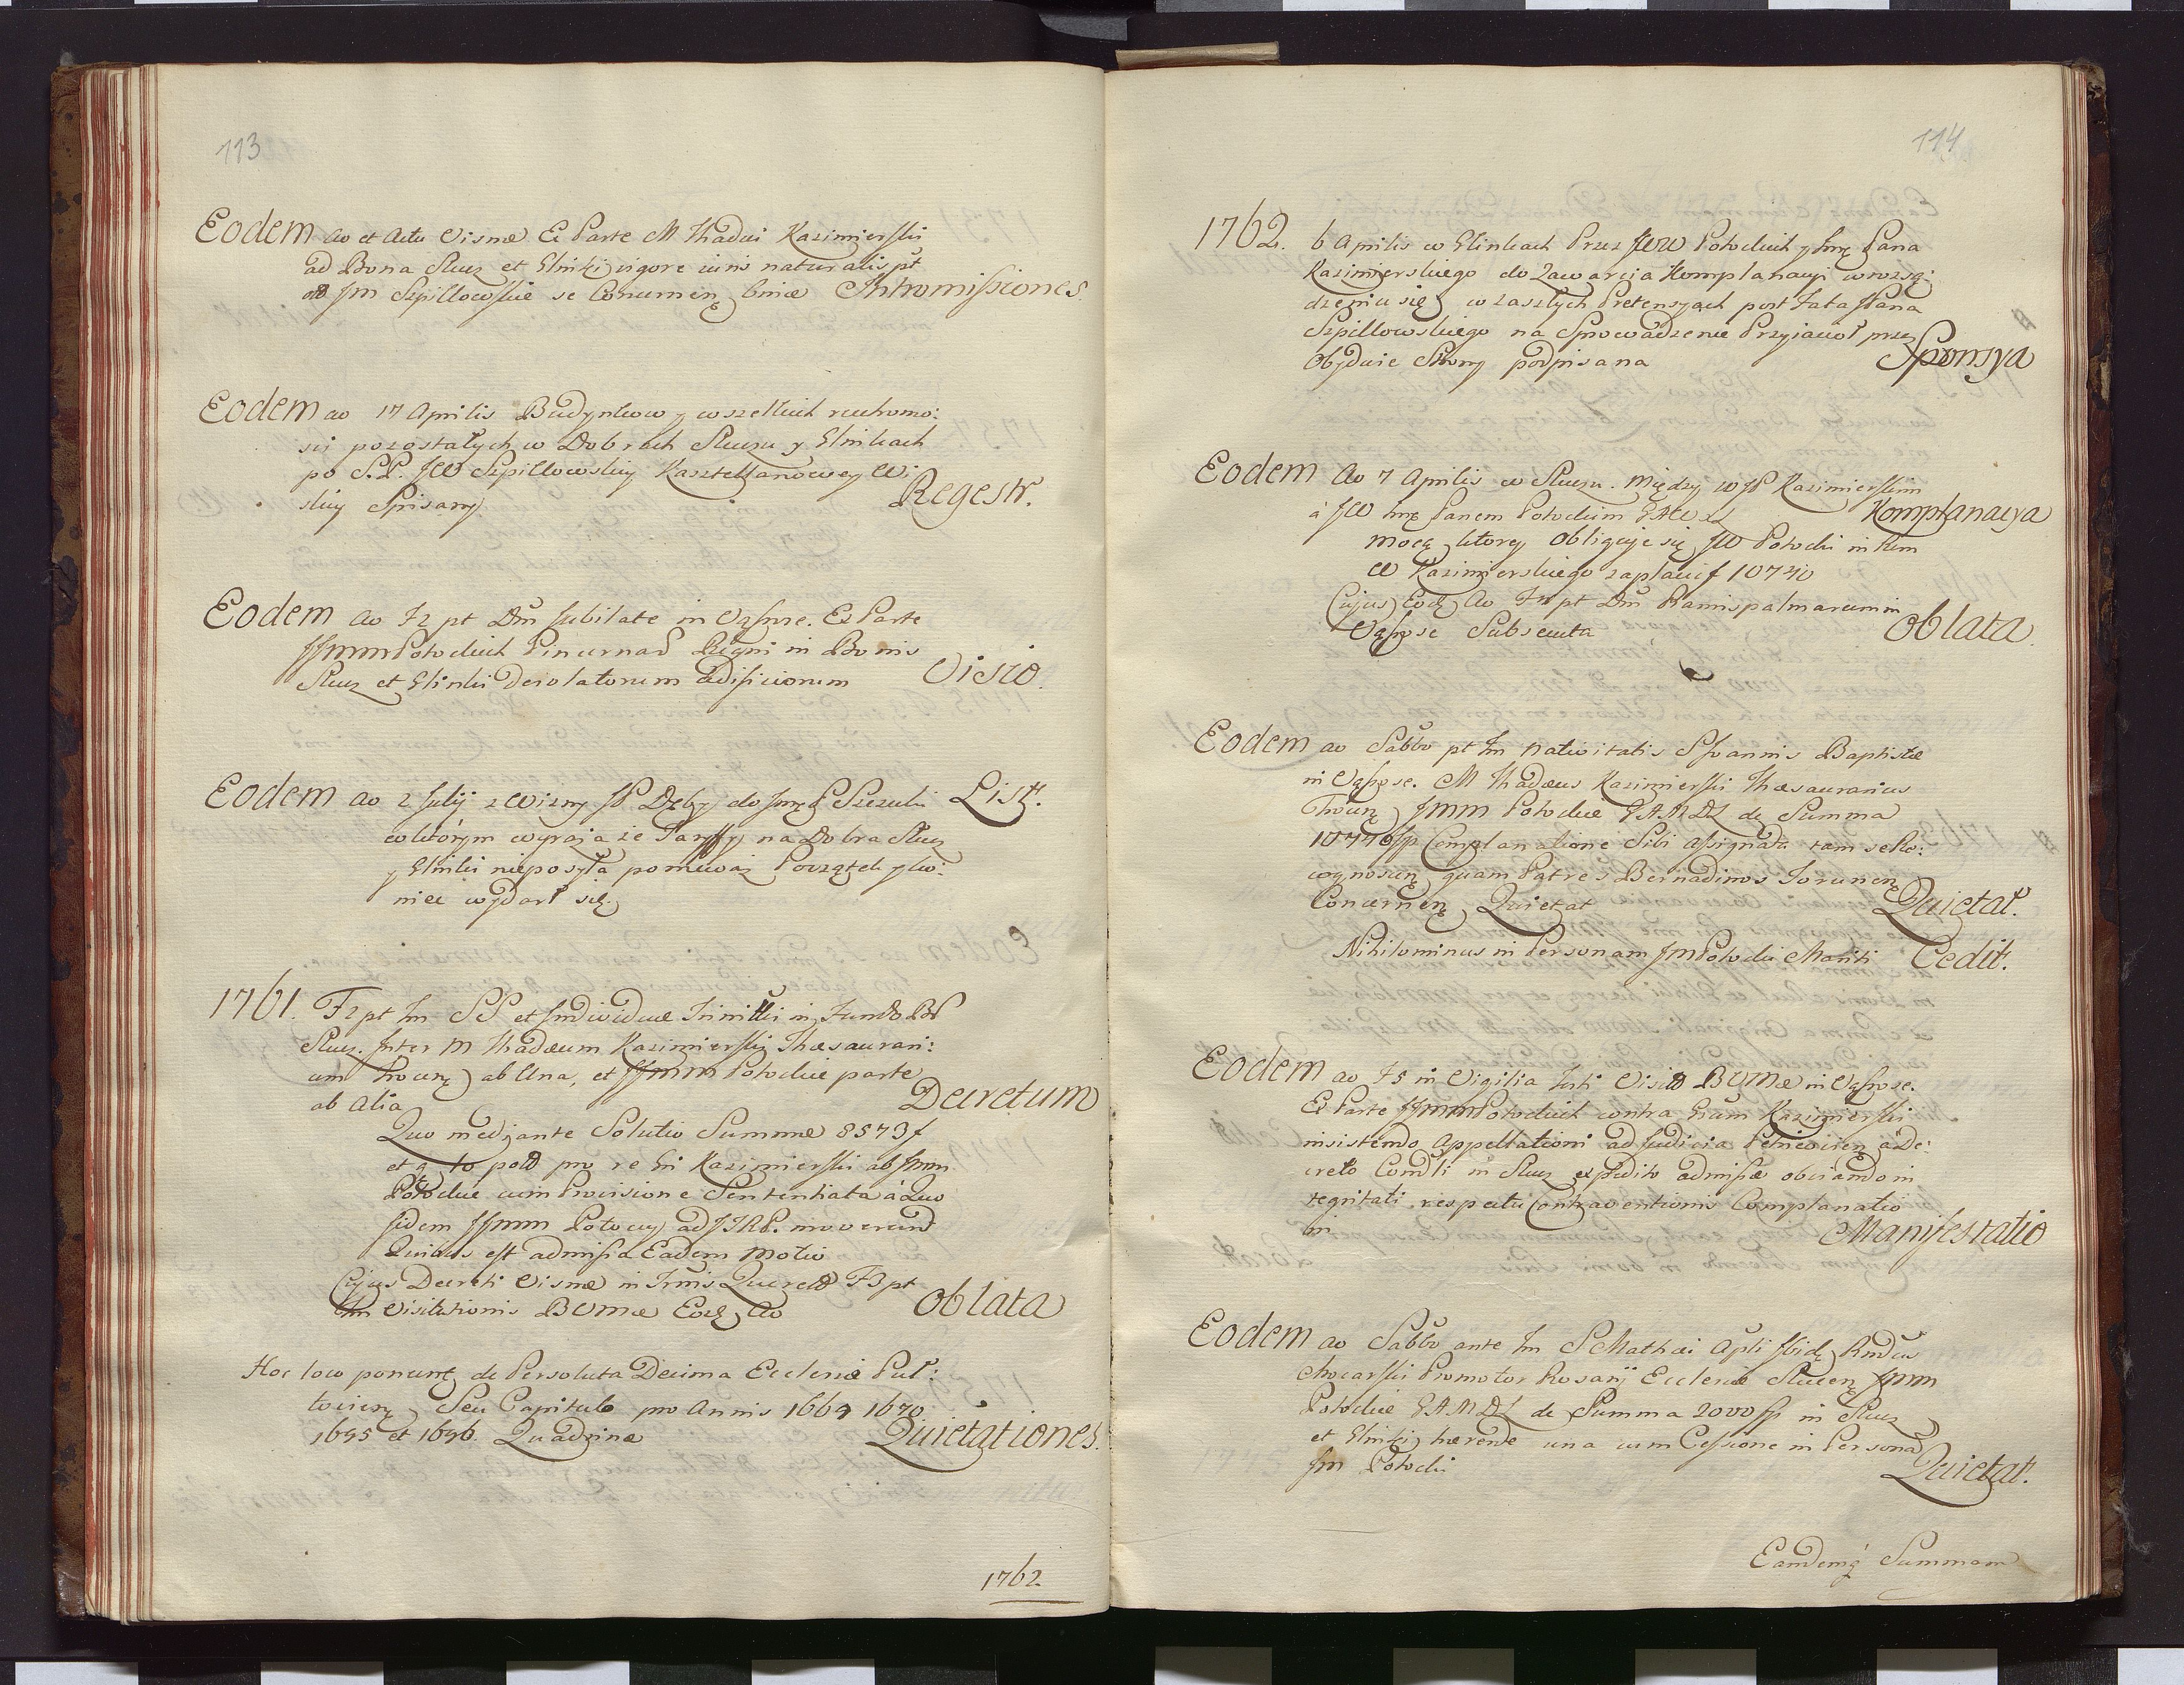 113
Eodem ao et Actu Visnæ Ex Parte M Thadæi Kazimierski
ad Bona Słucz et Elinki vigore iuris naturalis pt
Im Szpillowskie se Concernen binæ Intromissiones
Eodem ao 17 Aprilis Budynkow y wszelkich ruchomo:
sci pozostałych w Dobrach Słuczu y Elinkach
po S.P. JW Szpillowskiy Kasztellanowey Wi
skiy Spisany Regestr.
Eodem ao F2 pt Dm Jubilate in Vąsosze. Ex Parte
JJmm Potockich Pincernar Regni in Bonis
Słucz et Elinki Desolatorum Ædificiorum Visio.
Eodem ao 2 Julij z Wizny JP Dęby do Jmę P Szczuki List.
w którym wyraża że Taryffy na Dobra Słucz
y Elinki nieposyła poniewaz Początek y ko:
niec wydarł się.
1761. F2 pt Fm SS et Individuæ Trinitti in Fundo
Słucz. Inter M Thadæum Kazimierski Thesaurari:
um ab Una, et JJmm Potockie parte
ab Alia Decretum
Quo mediante Solutio Summæ 8573 f
et pro re Kazimierski ab Jmm
Potockie cum Provisione Sententiata á Quo
iidem JJmm Potoccy ad JTRP. moverunt
Quibus est admissa Eadem Motio
Cujus Decreti Visnæ in Trmis Querel F3 pt
Fm Visitationis BVMæ Eod Ao Oblata
Hoc loco ponunt de Persoluta Decima Ecclesiæ Puł:
Seu Capitulo pro Annis 1669 1670
1695 et 1696 Quadrinæ Quietationes.
1762
114
1762. 6 Aprilis w Elinkach Przez JWW Potockich y Jmę Pana
Kazimierskiego do Zawarcia Komplanacyi w rozsą:
dzeniu się w zaszłych Pretensyach post Fata Pana
Szpillowskiego na Sprowadzenie Przyiacioł przez
Obydwie Strony podpisana Sponsya
Eodem Ao 7 Aprilis w Słuczu. Między WJP Kazimierskim
á JW Jmę Panem Potockim Komplanacya
mocą ktorey Obliguje się JW Potocki in Rem
W Kazimierskiego zapłacić f 10740
Cujus Eod Ao F2 pt Dm Ramispalmarum in
Vąsosze Subsecuta Oblata.
Eodem ao Sabbo pt Fm Nativitatis S Joannis Baptistæ
in Vąsosze. M Thadæus Kazimierski Thesaurarius
Jmm Potockie de Summa
10740 fp Complanatione Sibi assignata tam se
quam Patres Bernadinos
Concernen Quietat Quietat.
Nihilominus in Personam Jm Potocki Mariti Cedit.
Eodem ao F5 in Vigilia Festi Visitt BVMæ in Vąsosze.
Ex Parte JJmm Potockich contra Kazimierski
insistendo Appellationi ad Judicia á De:
creto in Słucz expedito admissæ obviando in
tegritati respectu Contraventionis Complanatio
ni Manifestatio
Eodem ao Sabbo ante Fm S Mathæi Apli ibid Rndus
Promotor Rosarij Ecclesiæ Słucen Jmm
Potockie de Summa 2000 fp in Słucz
et Elinki hærende una cum Cessione in Persona
Jm Potocki Quietat.
Eamdemq Summam